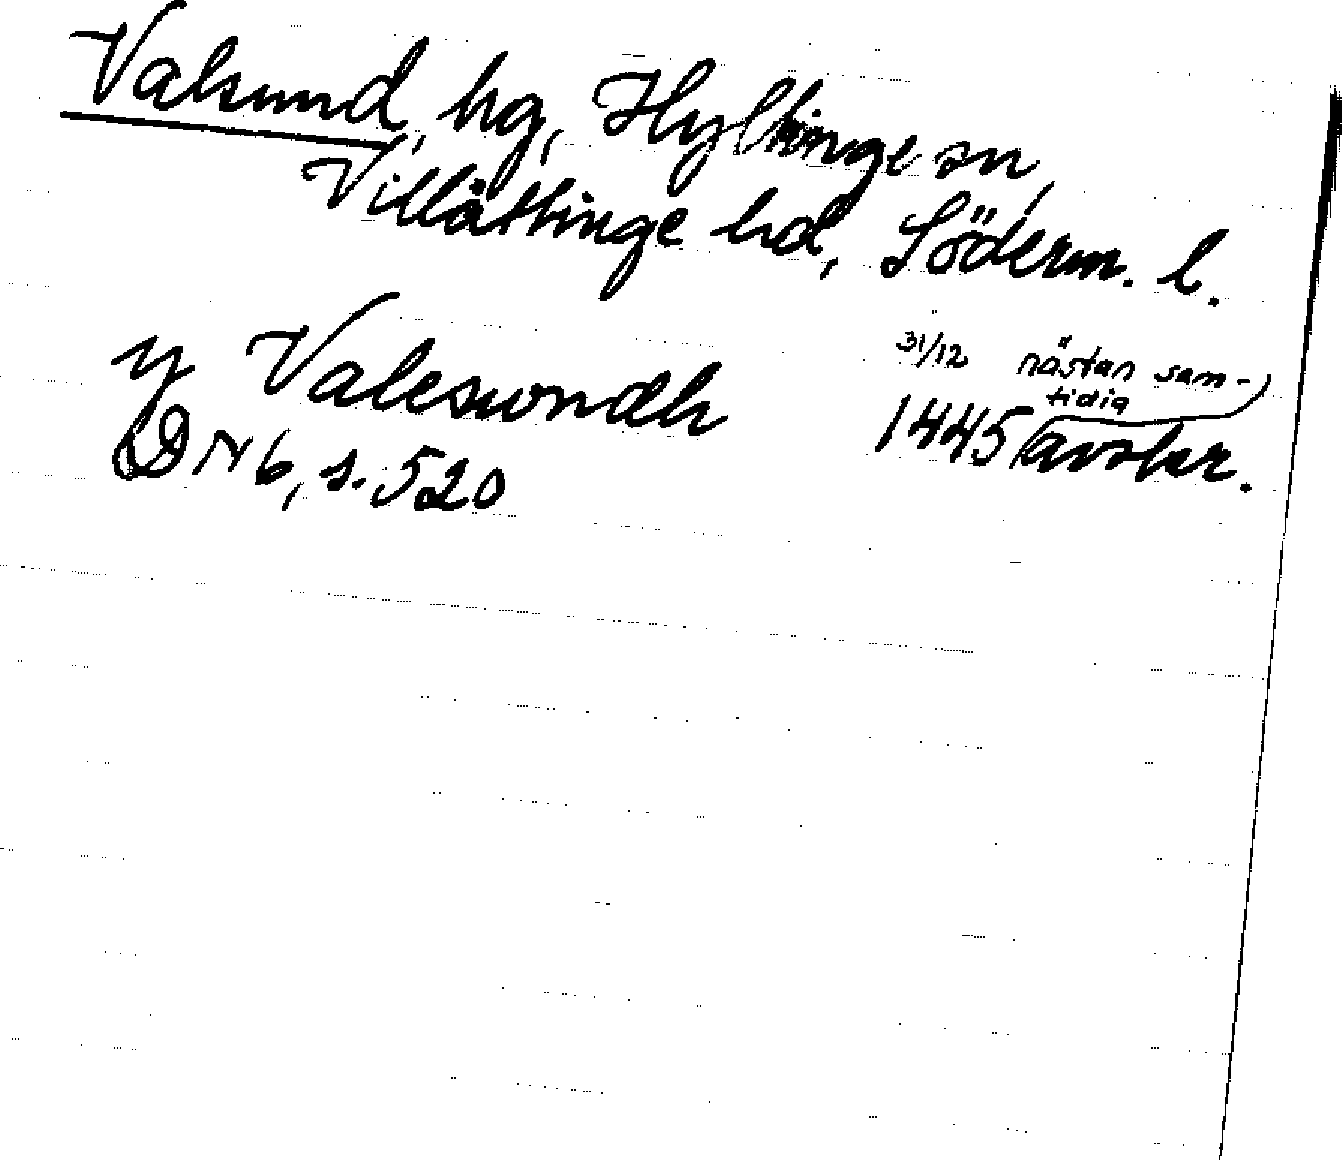 Valsund, hg, Hyltinge sn,
Villåttinge hd, Söderm. l.
y Valeswndh 31/12 1445 (nästan samtidig) avskr.
DN 6, s. 520